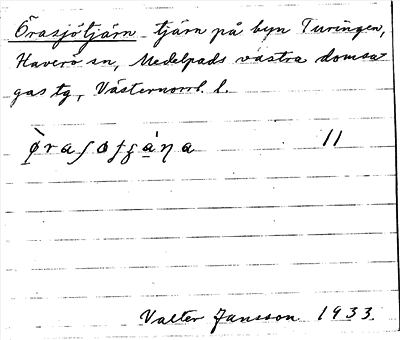 Örasjötjärn tjärn på byn Turingen,
Haverö sn, Medelpads västra domsa-
gas tg, Västernorrl. l.
11
Valter Jansson 1933.